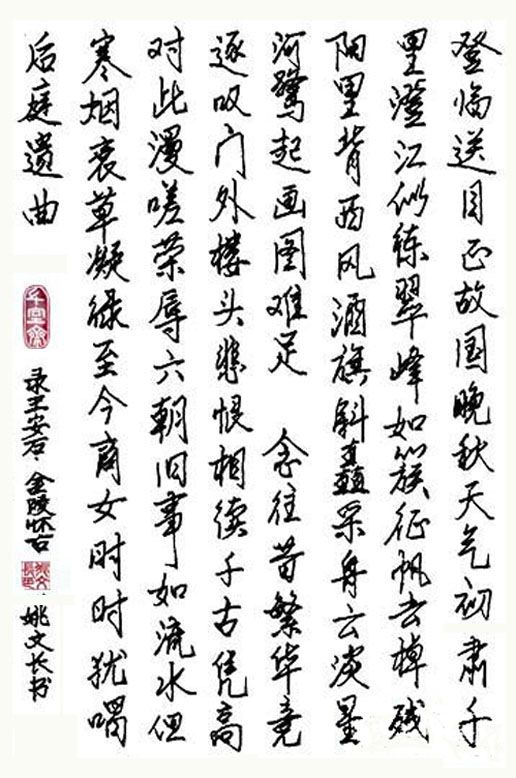 登临送目正故国晚秋天气初肃千
里澄江似练翠峰如簇征帆去棹残
阳里背西风酒旗斜矗采舟云淡星
河鹭起画图难足 念往昔繁华竞
逐叹门外楼头悲恨相续千古凭高
对此漫嗟荣辱六朝旧事如流水但
寒烟衰草凝绿至今商女时时犹唱
后庭遗曲
录王安石·金陵怀古
姚文长书